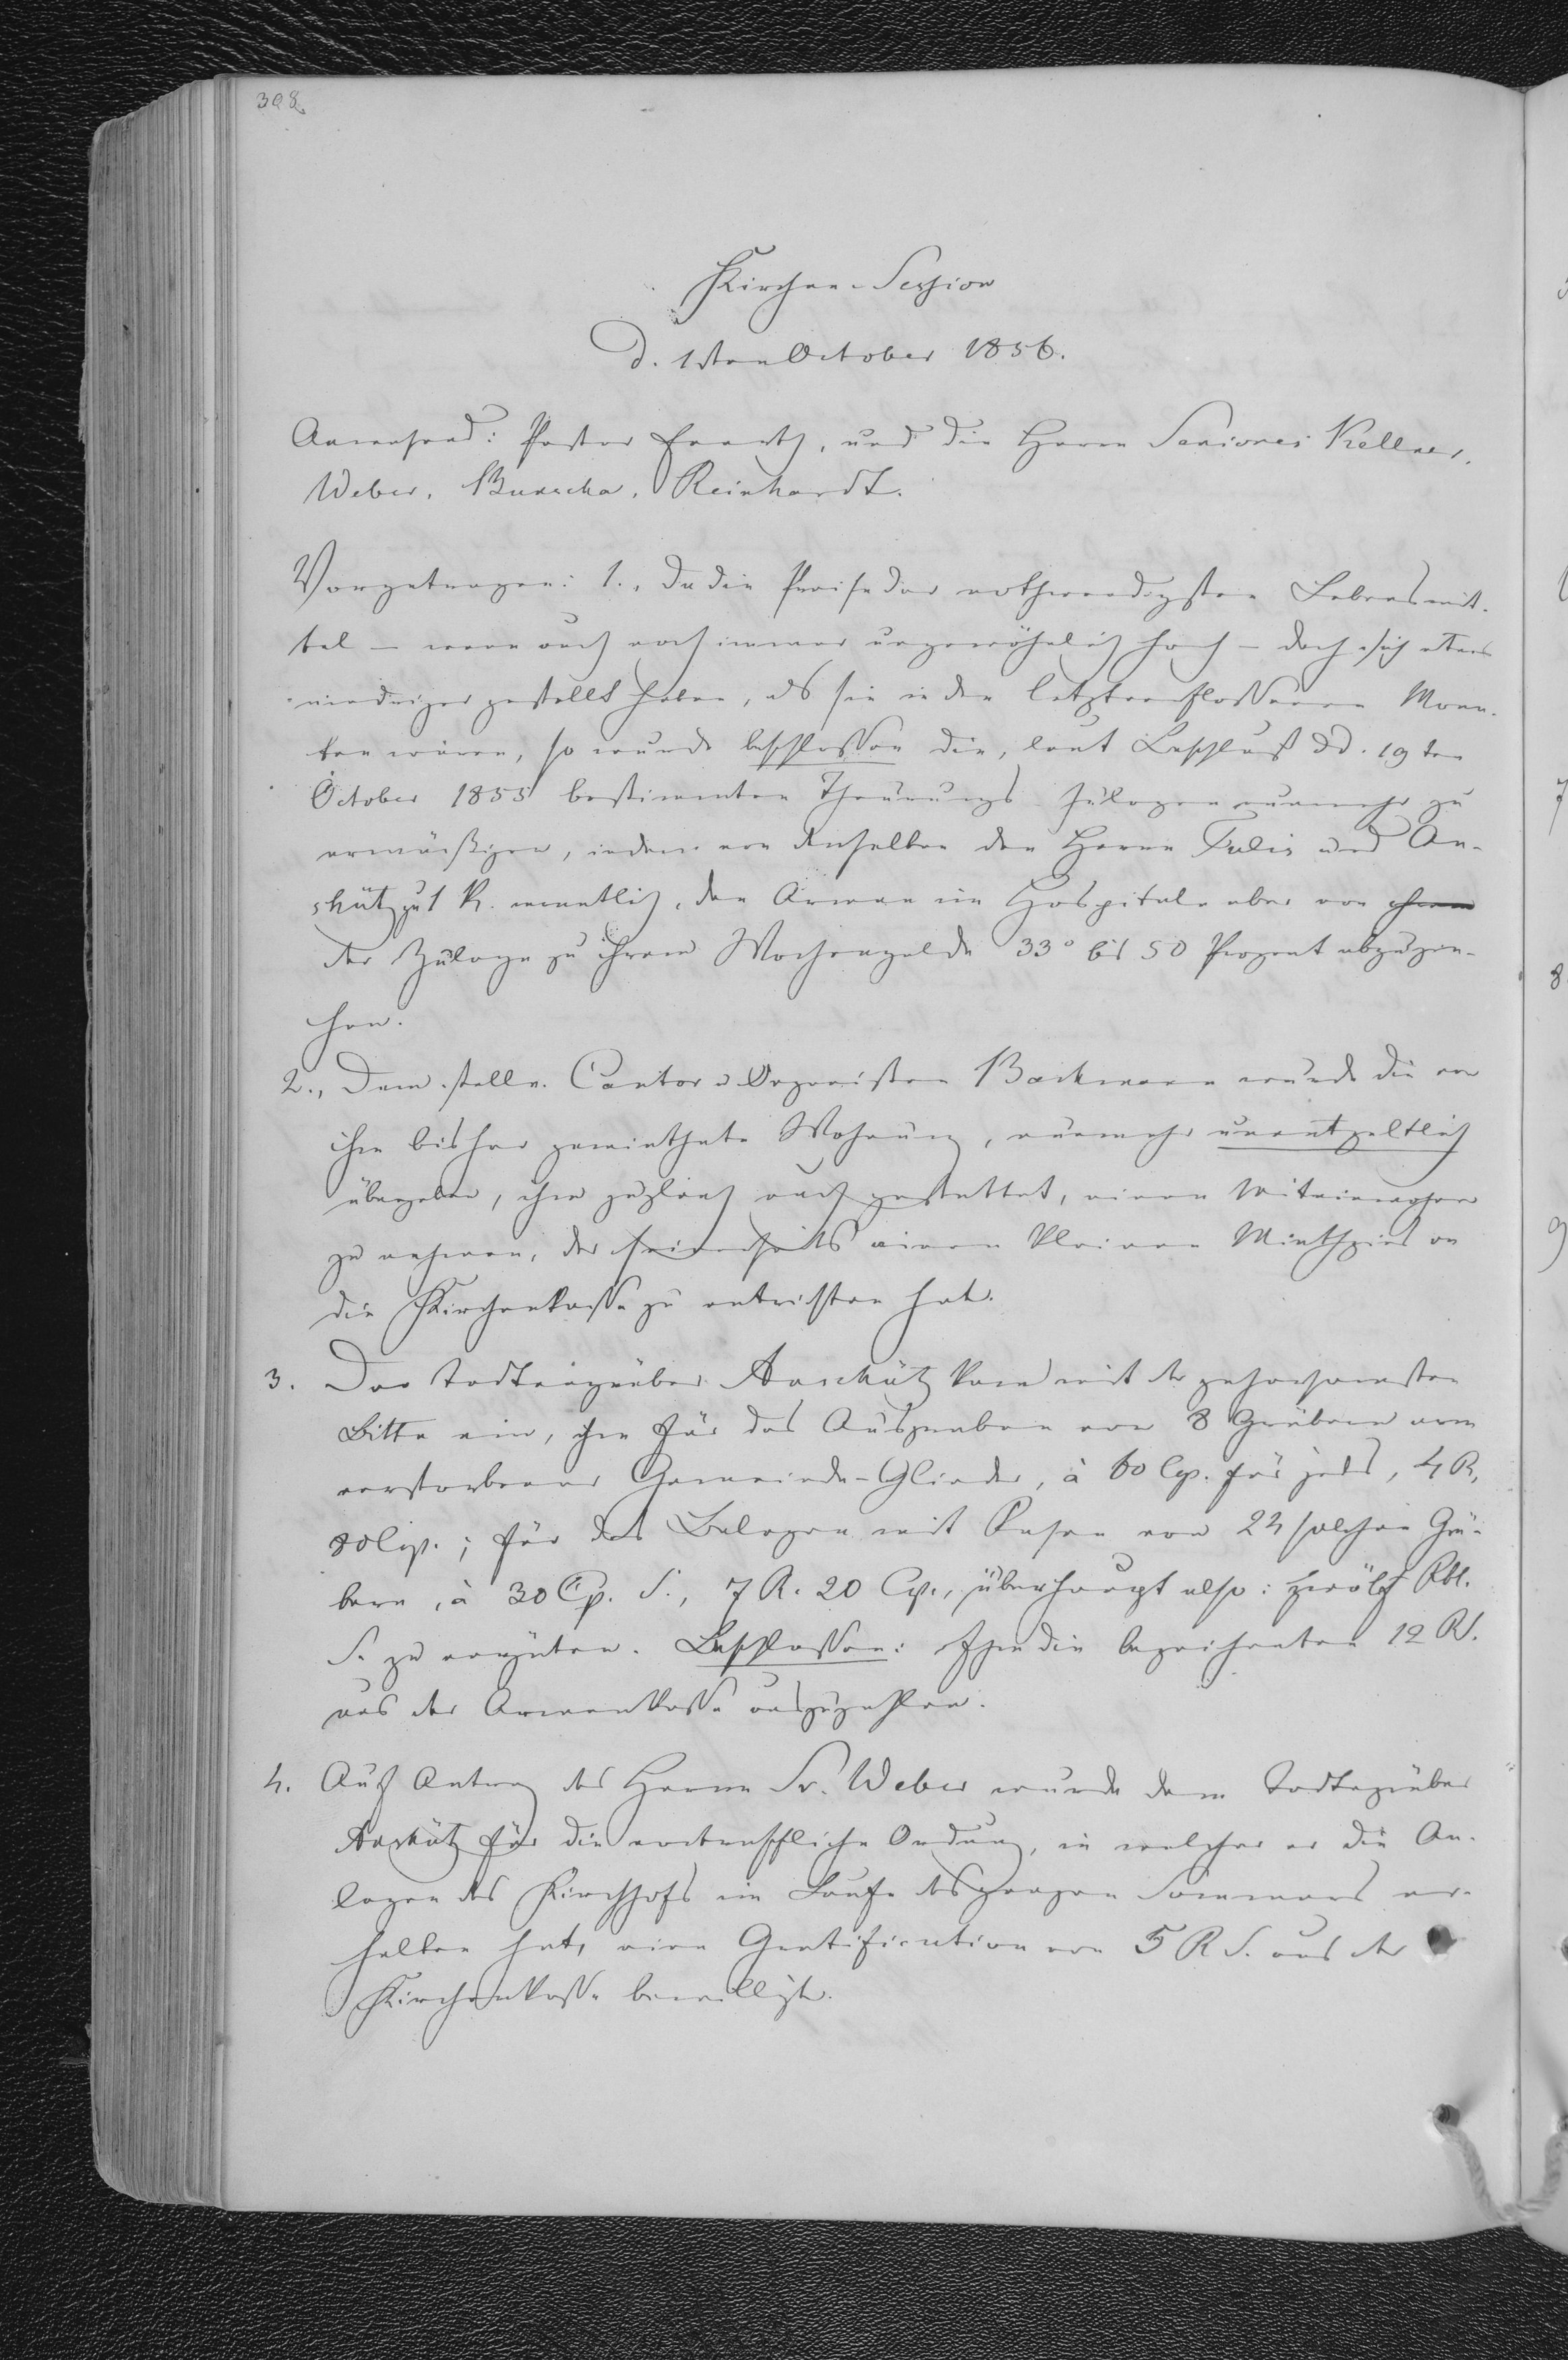 308.
Kirchen-Session
d. 1sten October 1856.
Anwesend: Pastor Frantz, und die Herrn Seniores Kellner,
Weber, Buascha, Reinhardt.
Vorgetragen: 1., Da die Preise der nothwendigsten Lebensmit-
tel – wenn auch noch immer ungewöhnlich hoch – doch sich etwas
niedriger gestellt haben, als sie in den letztverflossenen Mona-
ten waren, so wurde beschlossen die, laut Beschluß dd. 19ten
October 1855 bestimmten Theurungs-Zulagen nunmehr zu
ermäßigen, indem von denselben den Herrn Fulis und An-
schütz zu 1 R. monatlich, den Armen im Hospitale aber von ihrem
der Zulage zu ihrem Wochengelde 33° bis 50 Prozent abzuzie-
hen.
2., Dem stellv. Cantor u Organisten Backmann wurde die von
ihm bisher gemiethete Wohnung, nunmehr unentgeltlich
übergeben, ihm zugleich auch gestattet, einen Miteinwohner
zu nehmen, der seinerseits einen kleinen Miethzins an
die Kirchenkasse zu entrichten hat.
3. Der Todtengräber Anschütz kam mit der gehorsamsten
Bitte ein, ihm für das Ausgraben von 8 Gräbern arm
verstorbener Gemeinde-Glieder, à 60 Cp. für jedes, 4 R.
80 Cop.; für das Belegen mit Rasen von 24 solchen Grä-
bern, à 30 Cp. S., 7 R. 20 Cp., überhaupt also: zwölf Rbl.
S. zu vergüten. Beschlossen: Ihm die bezeichneten 12 RS.
aus der Armenkasse auszuzahlen.
4. Auf Antrag des Herrn Sr. Weber wurde dem Todtengräber
Anschütz für die vortreffliche Ordnung, in welcher er die An-
lagen des Kirchhofs im Laufe des ganzen Sommers er-
halten hat, eine Gratification von 5 R S. aus der
Kirchenkasse bewilligt.